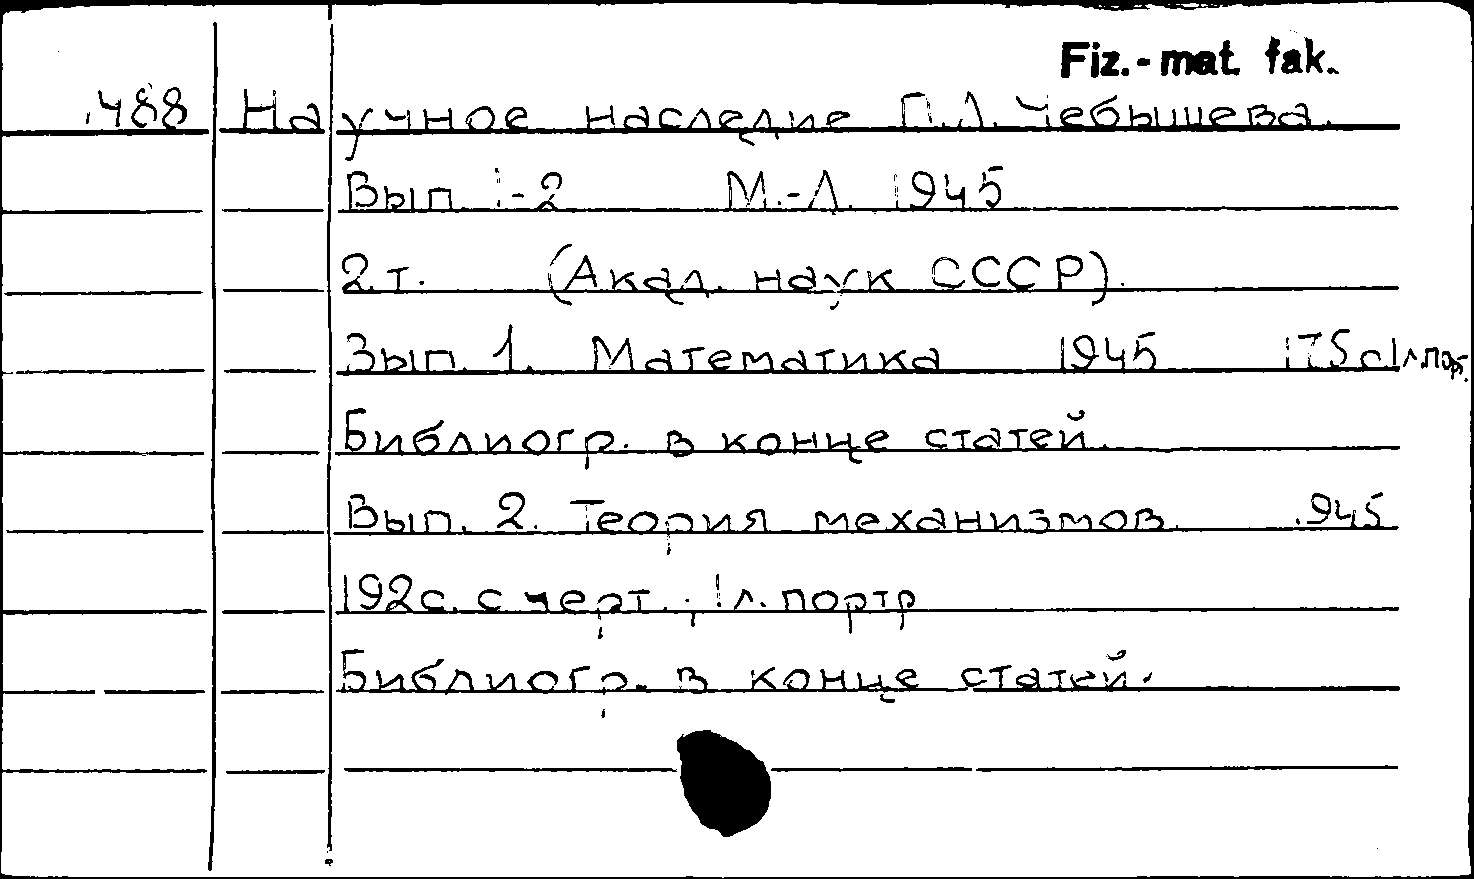 Fiz.-mat. fak.
488 Научное наследие П.Л. Чебышева.
Вып. 1-2 М.-Л. 1945
2 т. (Акад. наук СССР).
Вып. 1. Математика 1945 175 с. 1 л. порт.
Библиогр. в конце статей.
Вып. 2. Теория механизмов. 1945
192 с. с черт., 1 л. портр
Библиогр. в конце статей.